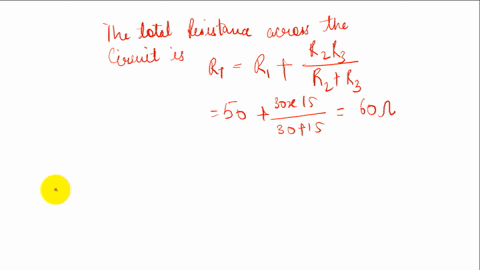 The total Resistance across the
Circuit is R_T = R_1 + \frac{R_2 R_3}{R_2 + R_3}
= 50 + \frac{30 × 15}{30 + 15} = 60 Ω